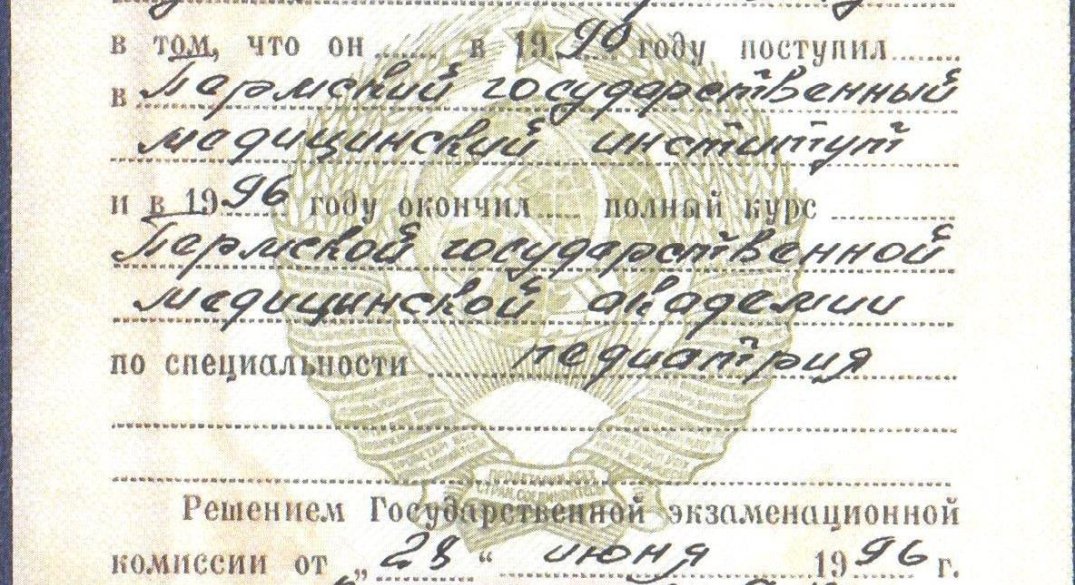 в том, что он в 1990 году поступил
в Пермский государственный
медицинский институт
и в 1996 году окончил полный курс
Пермской государственной
медицинской академии
по специальности педиатрия
Решением Государственной экзаменационной
комиссии от „28“ июня 1996 г.